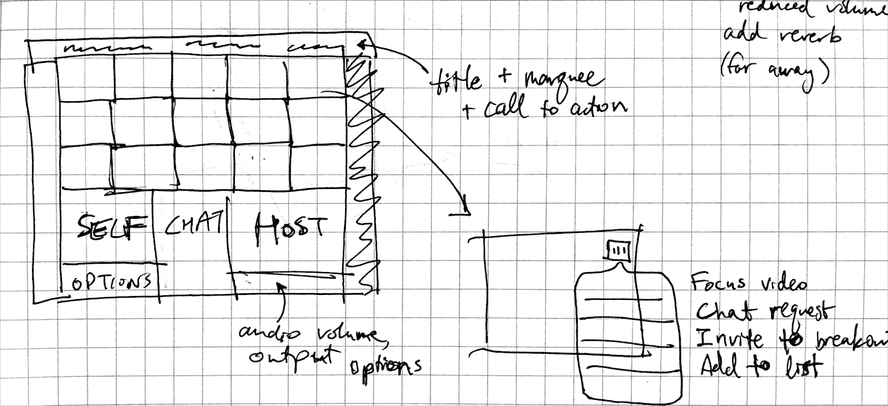 reduced volume
add reverb
(far away)
title + marquee
+ call to action
SELF CHAT HOST
OPTIONS
audio volume,
output options
Focus video
Chat request
Invite to
Add to list